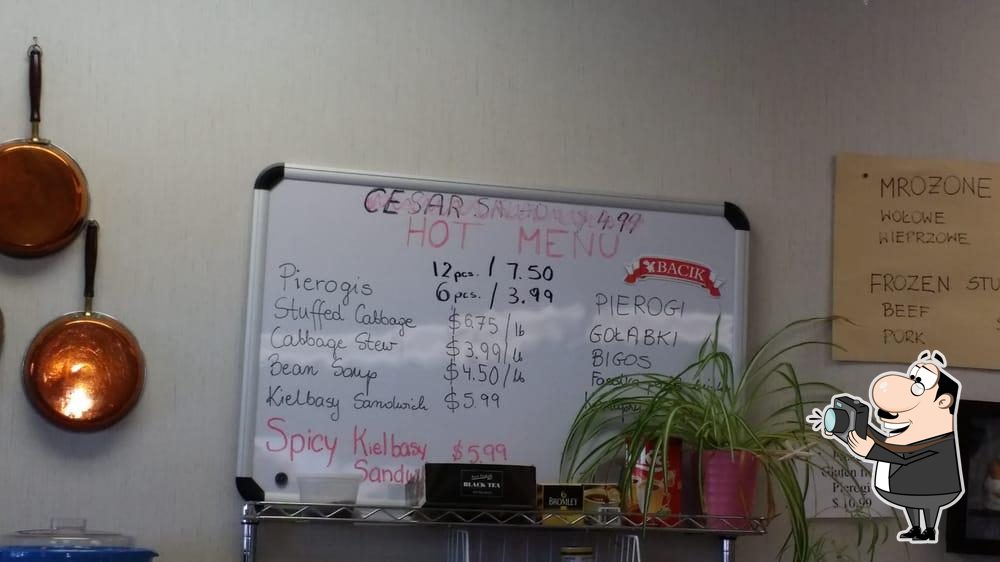 CESAR SALAD 4.99
HOT MENU
Pierogis 12 pcs. / 7.50
6 pcs. / 3.99
Stuffed Cabbage $6.75/lb
Cabbage Stew $3.99/lb
Bean Soup $4.50/lb
Kielbasy Sandwich $5.99
Spicy Kielbasy $5.99
Sandwi
BACIK
PIEROGI
GOŁABKI
BIGOS
MROŻONE
WOŁOWE
WIEPRZOWE
FROZEN STU
BEEF
PORK
BLACK TEA
BROMLEY
Gluten
Pierogi